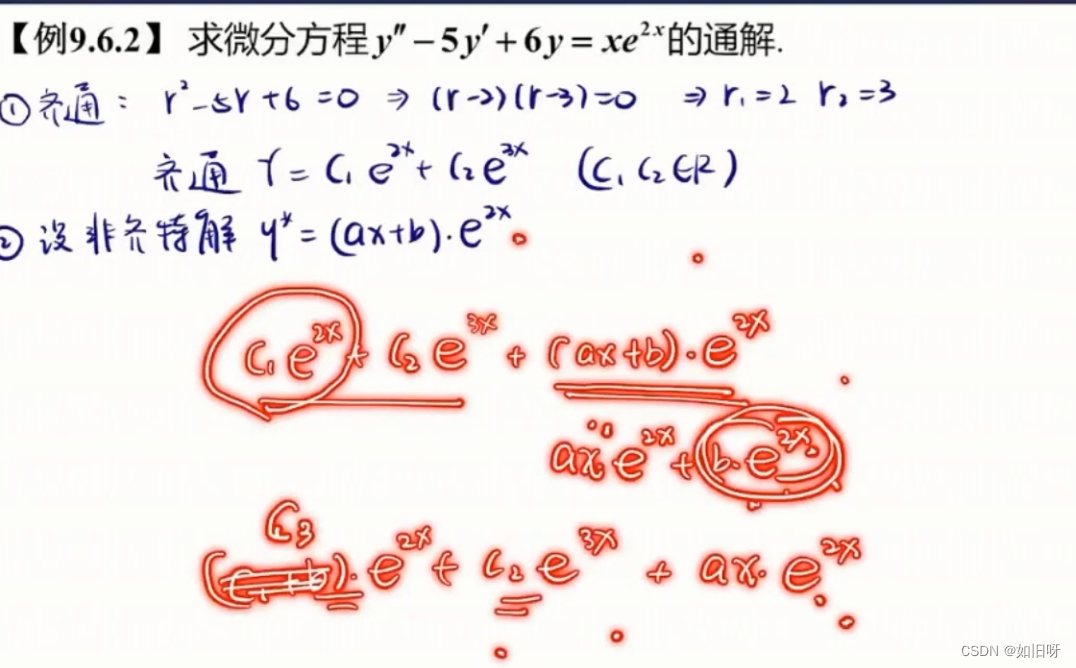 【例9.6.2】 求微分方程y″ − 5y′ + 6y = xe^{2x}的通解.
①齐通: r² − 5r + 6 = 0 ⇒ (r−2)(r−3)=0 ⇒ r₁=2 r₂=3
齐通 Y = C₁e^{2x} + C₂e^{3x} (C₁ C₂∈R)
② 设非齐特解 y* = (ax+b)·e^{2x}
C₁e^{2x} + C₂e^{3x} + (ax+b)·e^{2x}
axe^{2x} + b·e^{2x}
C₃
(C₁+b)·e^{2x} + C₂e^{3x} + ax·e^{2x}
CSDN @如旧呀